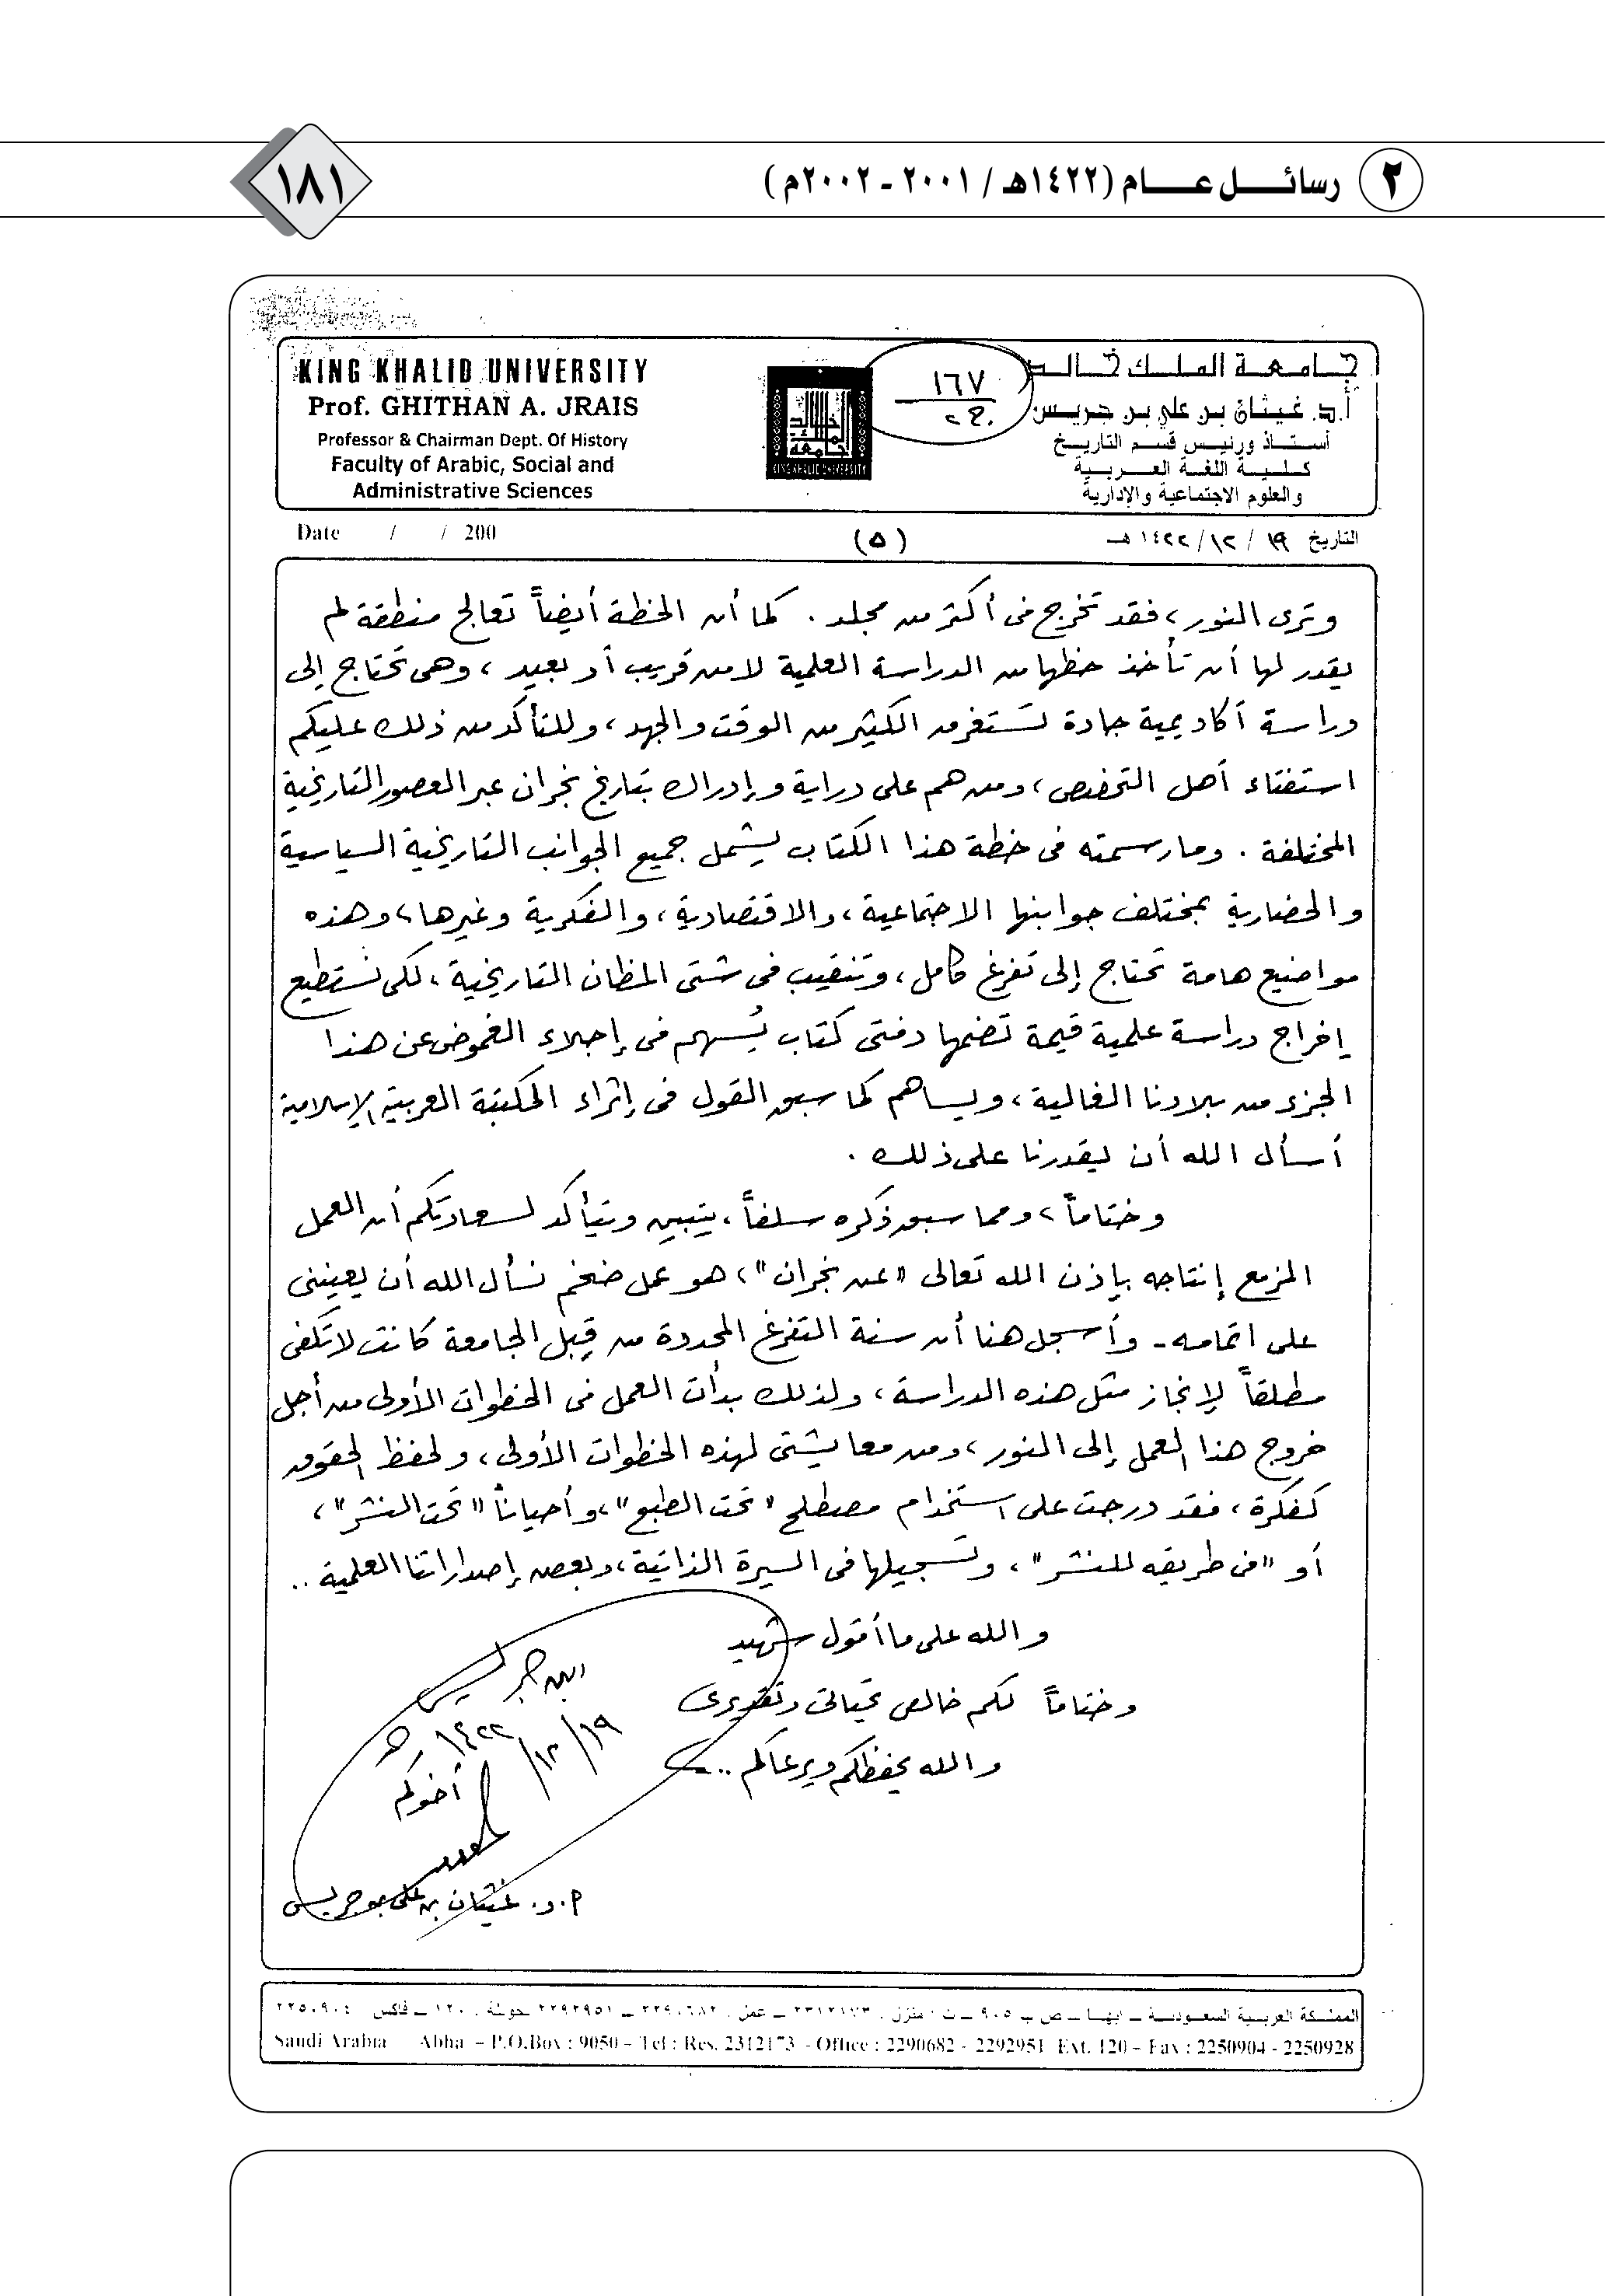 ٢ رسائل عام (١٤٢٢هـ / ٢٠٠١ - ٢٠٠٢م)
١٨١
جامعة الملك خالد
أ.د. غيثان بن علي بن جريس
أستاذ ورئيس قسم التاريخ
كلية اللغة العربية
والعلوم الاجتماعية والإدارية
١٦٧
KING KHALID UNIVERSITY
KING KHALID UNIVERSITY
Prof. GHITHAN A. JRAIS
Professor & Chairman Dept. Of History
Faculty of Arabic, Social and
Administrative Sciences
التاريخ ١٩ / ١٢ / ١٤٢٢ هـ
(٥)
Date / / 200
وترى النور، فقد تخرج في أكثر من مجلد . كما أن الخطة أيضاً تعالج منطقة لم
يقدر لها أن تأخذ حظها من الدراسة العلمية لا من قريب أو بعيد ، وهي تحتاج إلى
دراسة أكاديمية جادة تستغرق الكثير من الوقت والجهد ، وللتأكد من ذلك عليكم
استفتاء أهل التخصص ، ومن هم على دراية وإدراك بتاريخ نجران عبر العصور التاريخية
المختلفة . وما رسمته في خطة هذا الكتاب يشمل جميع الجوانب التاريخية السياسية
والحضارية بمختلف جوانبها الاجتماعية ، والاقتصادية ، والفكرية وغيرها ، وهذه
مواضيع هامة تحتاج إلى تفرغ كامل ، وتنقيب في شتى المظان التاريخية ، لكي نستطيع
إخراج دراسة علمية قيمة تضمها دفتي كتاب يُسهم في إجلاء الغموض عن هذا
الجزء من بلادنا الغالية ، ويساهم كما سبق القول في إثراء المكتبة العربية الإسلامية
أسأل الله أن يقدرنا على ذلك .
وختاماً ، ومما سبق ذكره سلفاً ، يتبين ويتأكد لسعادتكم أن العمل
المزمع إنتاجه بإذن الله تعالى "عن نجران" ، هو عمل ضخم نسأل الله أن يعينني
على اتمامه - وأسجل هنا أن سنة التفرغ المحددة من قِبل الجامعة كانت لا تكفي
مطلقاً لإنجاز مثل هذه الدراسة ، ولذلك بدأت العمل في الخطوات الأولى من أجل
خروج هذا العمل إلى النور ، ومن معايشتي لهذه الخطوات الأولى ، ولحفظ الحقوق
كفكرة ، فقد درجت على استخدام مصطلح "تحت الطبع" ، وأحياناً "تحت النشر" ،
أو "في طريقه للنشر" ، وتسجيلها في السيرة الذاتية ، وبعض إصداراتنا العلمية ..
والله على ما أقول شهيد
وختاماً لكم خالص تحياتي وتقديري
والله يحفظكم ويرعاكم ..
ابن جريس
١٩/١٢/١٤٢٢هـ
أخوكم
أ.د. غيثان بن علي بن جريس
المملكة العربية السعودية – ابها – ص ب ٩٠٥٠ – ت : منزل : ٢٣١٢١٧٣ – عمل : ٢٢٩٠٦٨٢ – ٢٢٩٢٩٥١ تحويلة : ١٢٠ – فاكس ٢٢٥٠٩٠٤
Saudi Arabia Abha – P.O.Box : 9050 – Tel : Res. 2312173 - Office : 2290682 - 2292951 Ext. 120 – Fax : 2250904 - 2250928